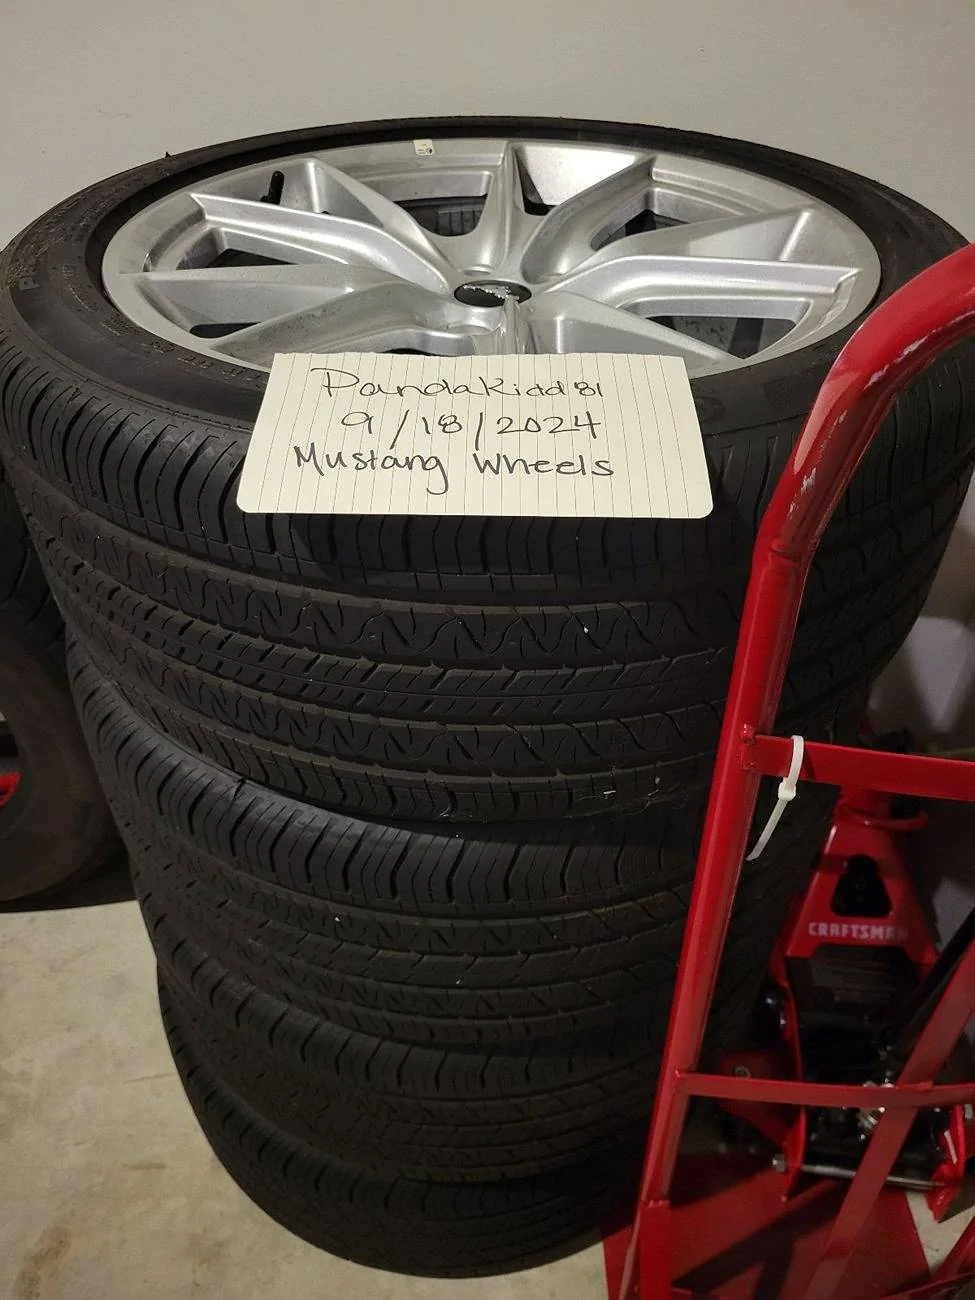 PandaKidd81
9/18/2024
Mustang Wheels
CRAFTSMAN